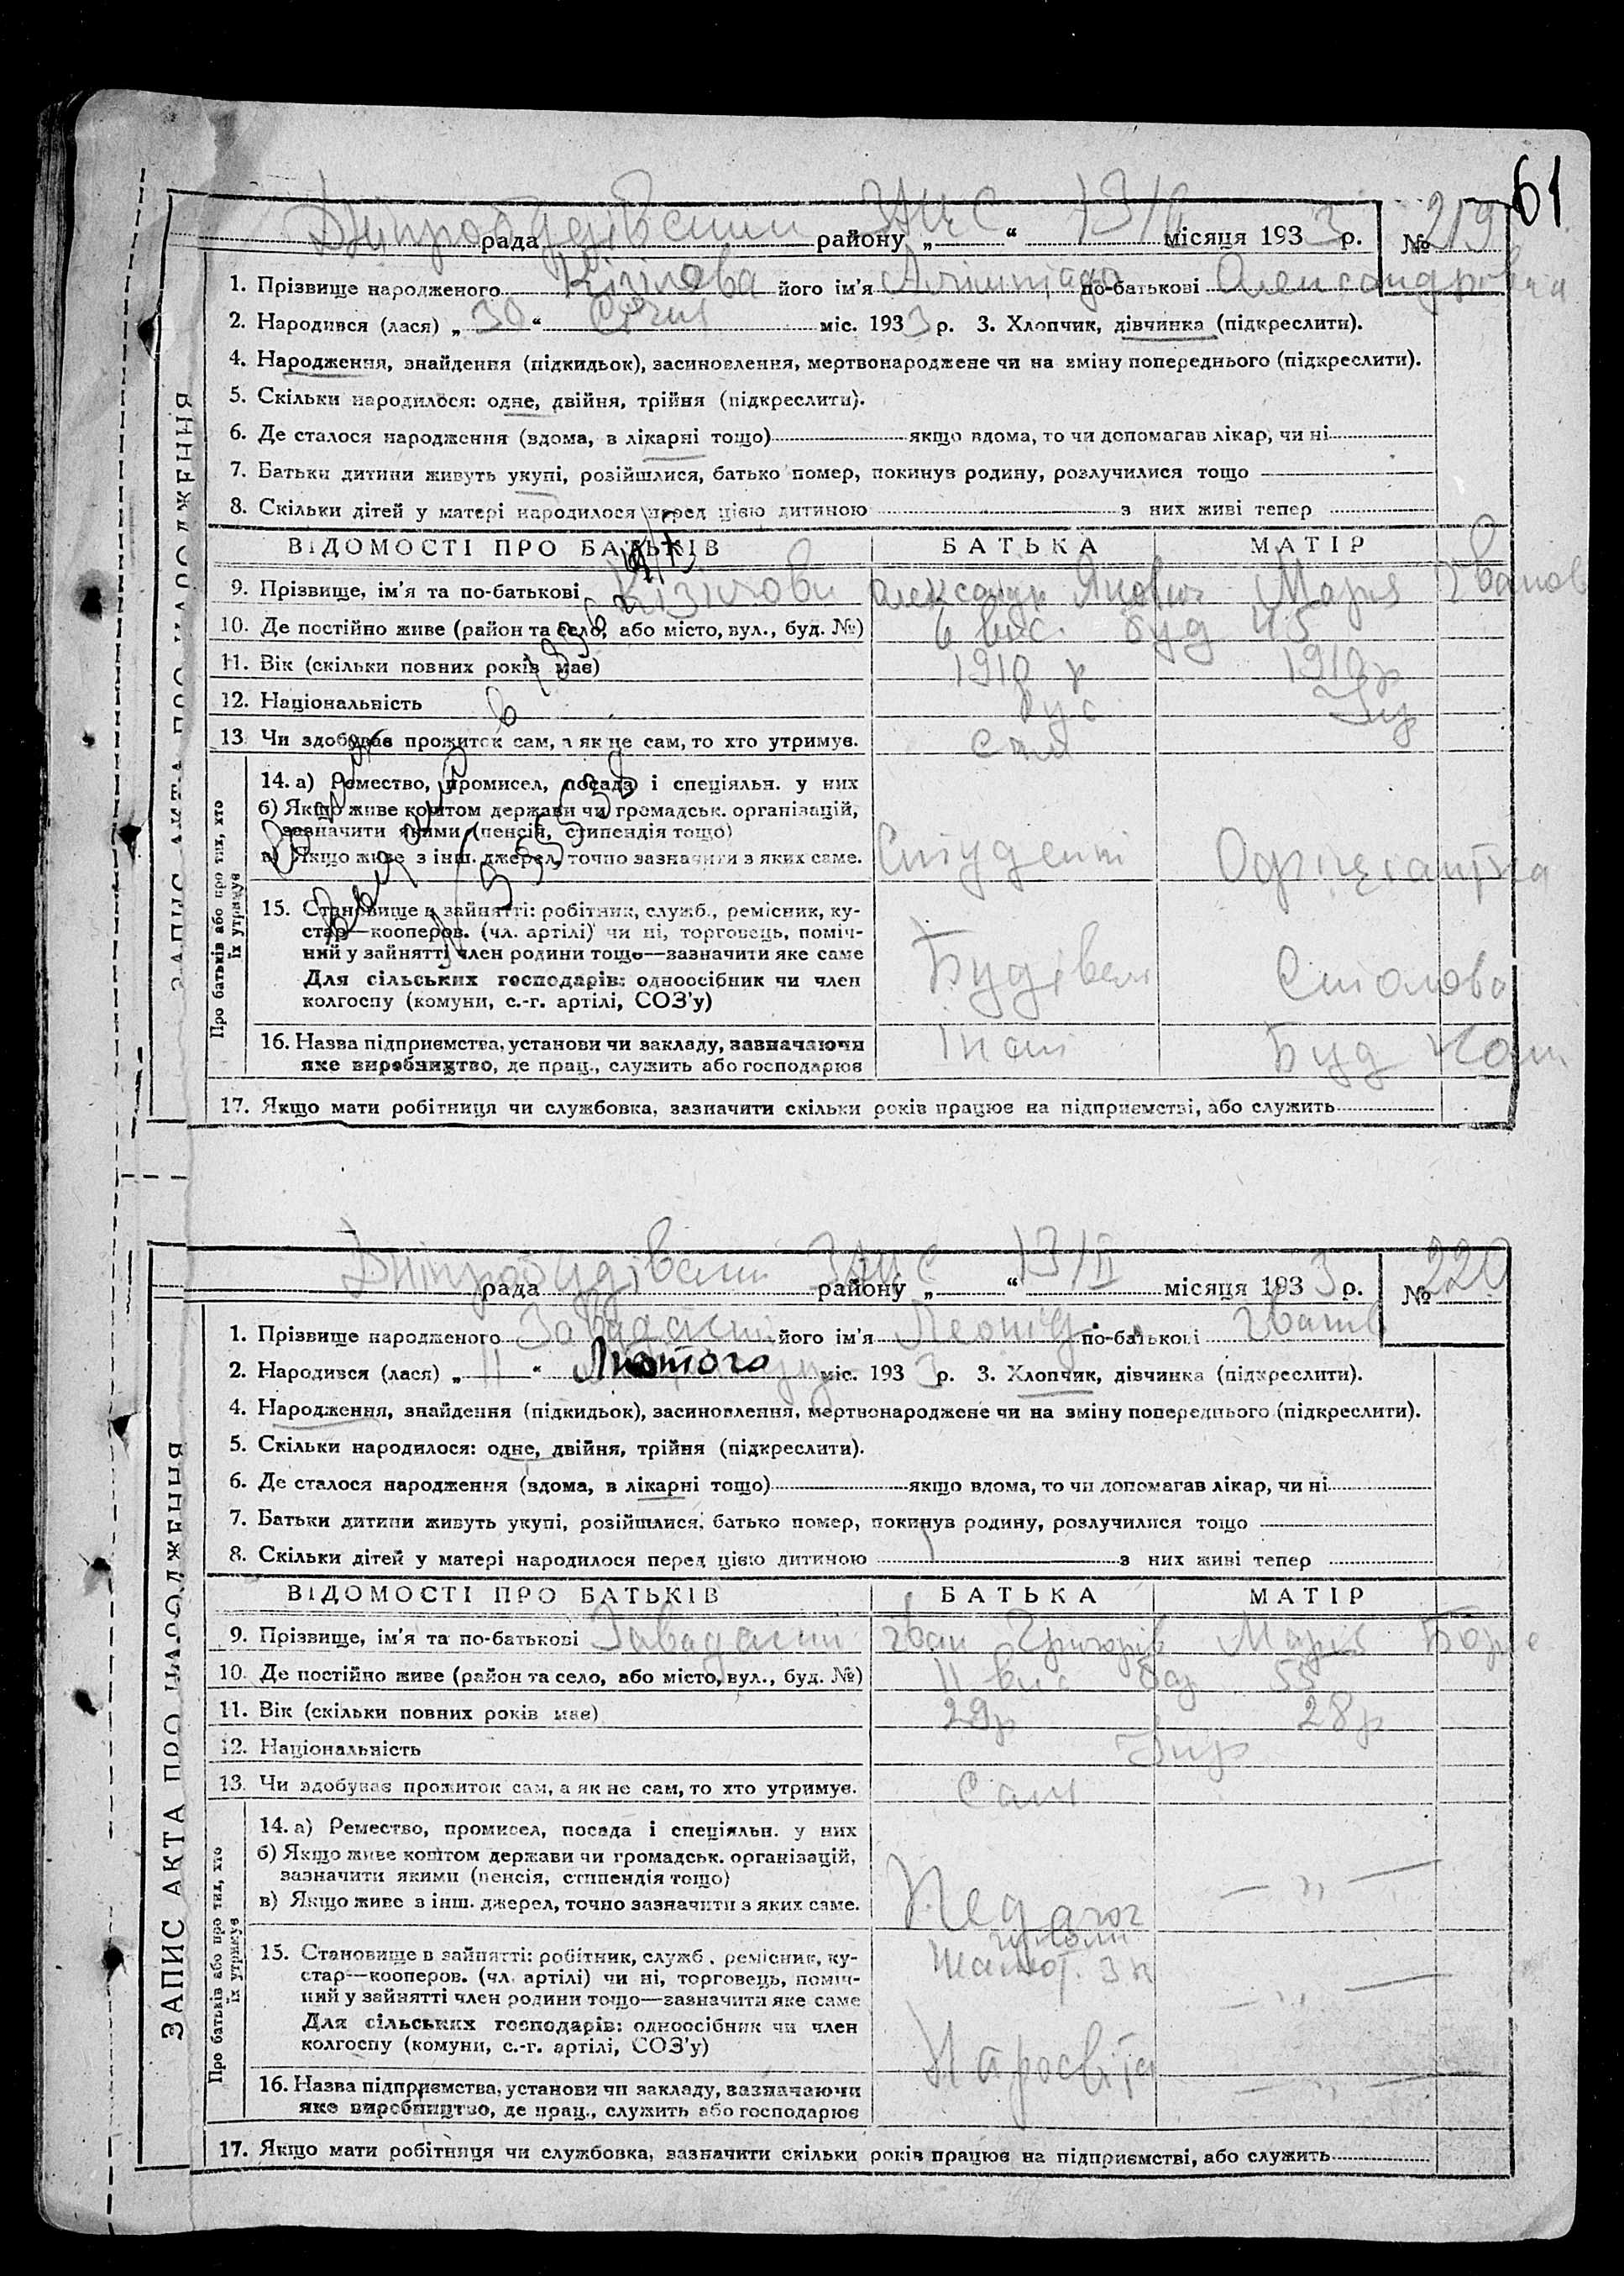 61
Дніпробудівський ЗАГС 13/II
рада району „ “ місяця 1933 р. № 219
1. Прізвище народженого Кізілова його ім'я по-батькові Олександрівна
2. Народився (лася) „ 30 “ Січня міс. 1933 р. 3. Хлопчик, дівчинка (підкреслити).
4. Народження, знайдення (підкидьок), засиновлення, мертвонароджене чи на зміну попереднього (підкреслити).
5. Скільки народилося: одне, двійня, трійня (підкреслити).
6. Де сталося народження (вдома, в лікарні тощо) якщо вдома, то чи допомагав лікар, чи ні
7. Батьки дитини живуть укупі, розійшлися, батько помер, покинув родину, розлучилися тощо
8. Скільки дітей у матері народилося перед цією дитиною з них живі тепер
ВІДОМОСТІ ПРО БАТЬКІВ БАТЬКА МАТІР
9. Прізвище, ім'я та по-батькові Кізілови Олександр Якович Марія Іванов
10. Де постійно живе (район та село, або місто, вул., буд. №) 6 вис. буд 45
11. Вік (скільки повних років має) 1910 р 1910 р
12. Національність Рус Укр
13. Чи здобуває прожиток сам, а як не сам, то хто утримує. Сам
ЗАПИС АКТА ПРО НАРОДЖЕННЯ
Про батьків або про тих, хто їх утримує
14. а) Ремество, промисел, посада і спеціяльн. у них
б) Якщо живе коштом держави чи громадськ. організацій,
зазначити якими (пенсія, стипендія тощо)
в) Якщо живе з інш. джерел, точно зазначити з яких саме. Студент Офіціантка
15. Становище в зайнятті: робітник, служб., ремісник, ку-
стар—кооперов. (чл. артілі) чи ні, торговець, поміч-
ний у зайнятті член родини тощо—зазначити яке саме
Для сільських господарів: одноосібник чи член
колгоспу (комуни, с.-г. артілі, СОЗ'у)
Будівель Столова
16. Назва підприємства, установи чи закладу, зазначаючи
яке виробництво, де прац., служить або господарює
Інст Буд
17. Якщо мати робітниця чи службовка, зазначити скільки років працює на підприємстві, або служить
Дніпробудівський ЗАГС 13/II
рада району „ “ місяця 1933 р. № 220
1. Прізвище народженого Завадский його ім'я Леонід по-батькові Іванов
2. Народився (лася) „ 11 “ Лютого міс. 1933 р. 3. Хлопчик, дівчинка (підкреслити).
4. Народження, знайдення (підкидьок), засиновлення, мертвонароджене чи на зміну попереднього (підкреслити).
5. Скільки народилося: одне, двійня, трійня (підкреслити).
6. Де сталося народження (вдома, в лікарні тощо) якщо вдома, то чи допомагав лікар, чи ні
7. Батьки дитини живуть укупі, розійшлися, батько помер, покинув родину, розлучилися тощо
8. Скільки дітей у матері народилося перед цією дитиною 1 з них живі тепер
ВІДОМОСТІ ПРО БАТЬКІВ БАТЬКА МАТІР
9. Прізвище, ім'я та по-батькові Завадский Іван Григорів Марія
10. Де постійно живе (район та село, або місто, вул., буд. №) 11 вис буд 55
11. Вік (скільки повних років має) 29р 28р
12. Національність Укр
13. Чи здобуває прожиток сам, а як не сам, то хто утримує. Сам
ЗАПИС АКТА ПРО НАРОДЖЕННЯ
Про батьків або про тих, хто їх утримує
14. а) Ремество, промисел, посада і спеціяльн. у них
б) Якщо живе коштом держави чи громадськ. організацій,
зазначити якими (пенсія, стипендія тощо)
в) Якщо живе з інш. джерел, точно зазначити з яких саме.
Педагог — „ —
15. Становище в зайнятті: робітник, служб., ремісник, ку-
стар—кооперов. (чл. артілі) чи ні, торговець, поміч-
ний у зайнятті член родини тощо—зазначити яке саме
Для сільських господарів: одноосібник чи член
колгоспу (комуни, с.-г. артілі, СОЗ'у)
— „ —
16. Назва підприємства, установи чи закладу, зазначаючи
яке виробництво, де прац., служить або господарює
Наросвіта — „ —
17. Якщо мати робітниця чи службовка, зазначити скільки років працює на підприємстві, або служить